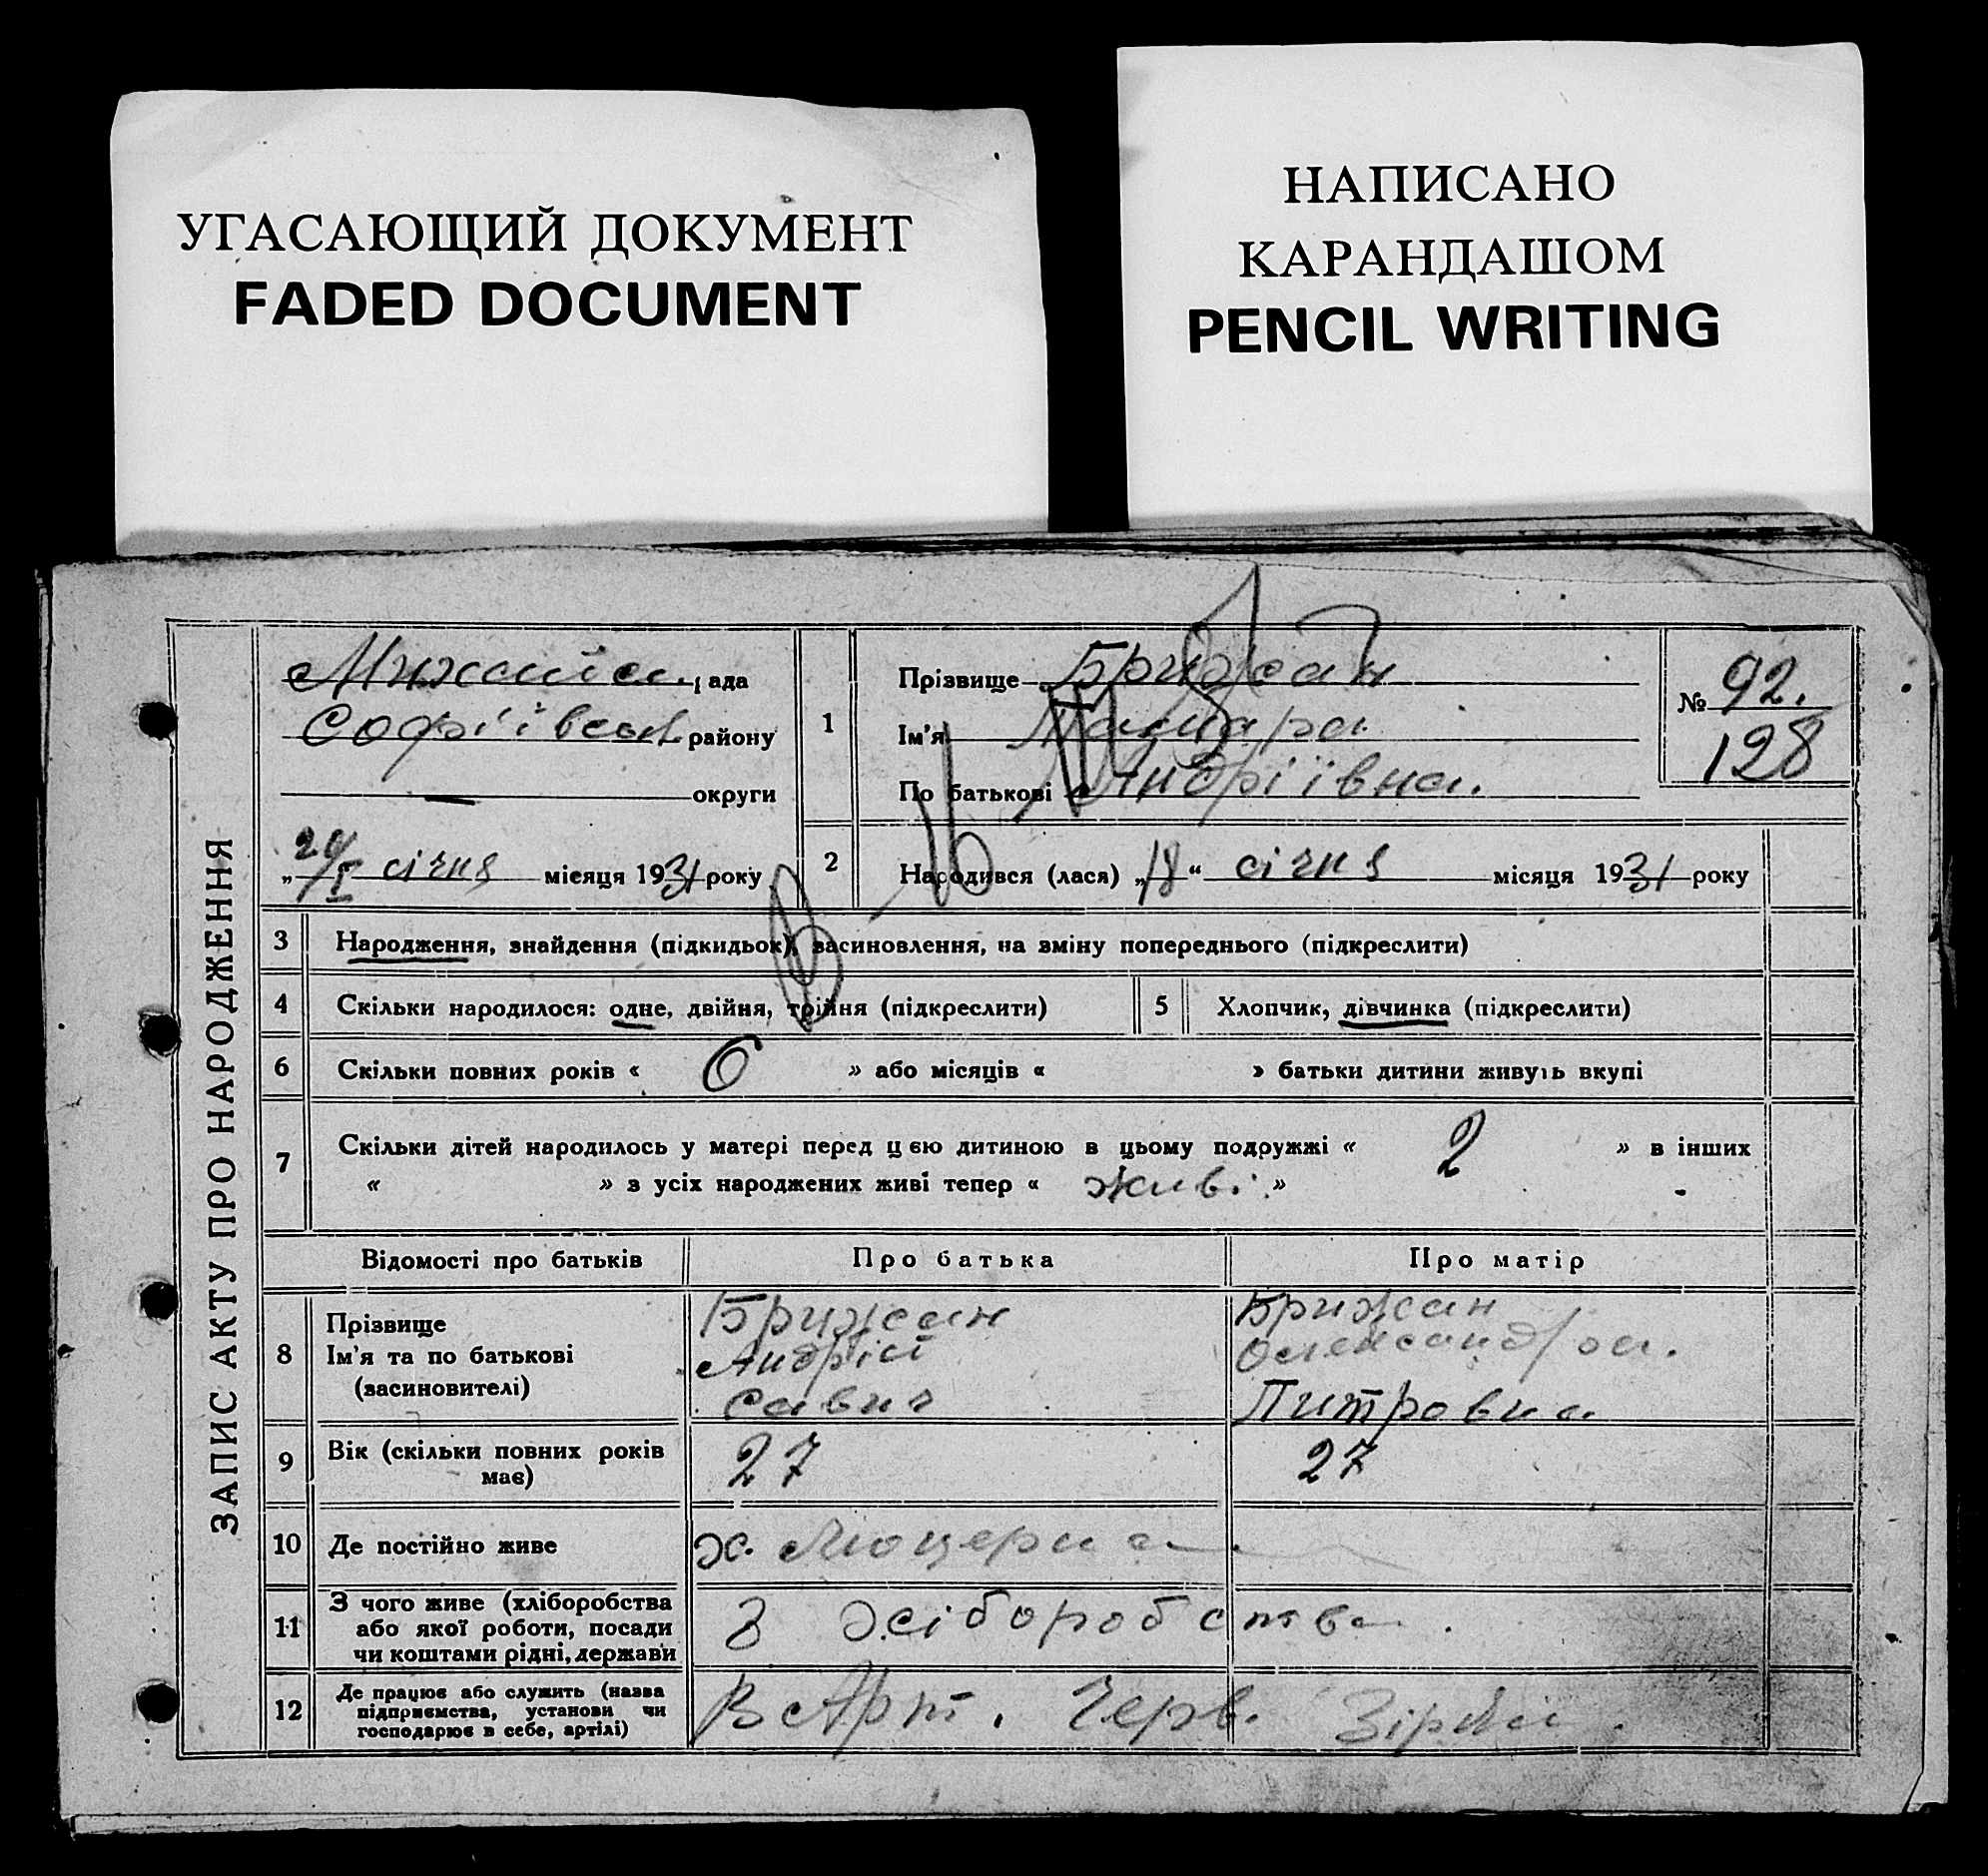 УГАСАЮЩИЙ ДОКУМЕНТ
FADED DOCUMENT
НАПИСАНО
КАРАНДАШОМ
PENCIL WRITING
ЗАПИС АКТУ ПРО НАРОДЖЕННЯ
рада
району
округи
„24/I" січня місяця 1931 року
1
Прізвище Брижан
Ім'я
По батькові Андріївна.
№ 92.
128
2
Народився (лася) „18" січня місяця 1931 року
3 Народження, знайдення (підкидьок), засиновлення, на зміну попереднього (підкреслити)
4 Скільки народилося: одне, двійня, трійня (підкреслити)
5 Хлопчик, дівчинка (підкреслити)
6 Скільки повних років « 6 » або місяців « » батьки дитини живуть вкупі
7 Скільки дітей народилось у матері перед цією дитиною в цьому подружжі « 2 » в інших
« » з усіх народжених живі тепер « живі »
Відомості про батьків Про батька Про матір
8 Прізвище Брижан Брижан
Ім'я та по батькові Андрій Олександра.
(засиновителі) Савич Питровна
9 Вік (скільки повних років має) 27 27
10 Де постійно живе х. Люцерна
11 З чого живе (хліборобства
або якої роботи, посади
чи коштами рідні, держави
З хіборобства.
12 Де працює або служить (назва
підприємства, установи чи
господарює в себе, артілі)
В Арт. Черв. Зірка.